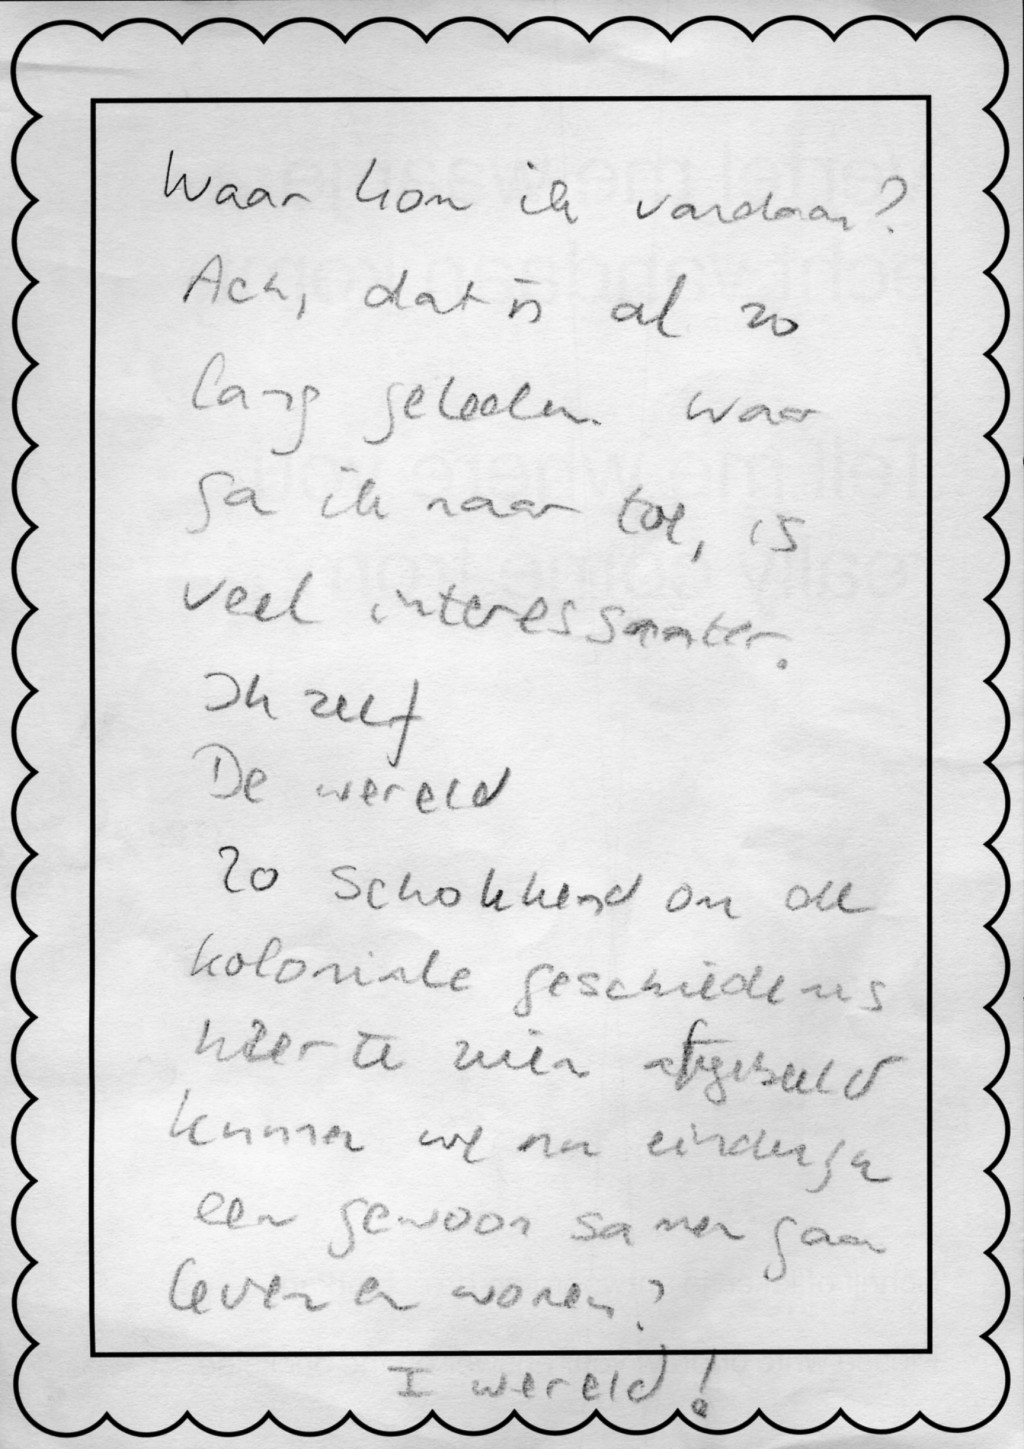 Waar kom ik vandaan?
Ach, dat is al zo
lang geleden. Waar
ga ik naar toe, is
veel interessanter.
Ik zelf
De wereld
Zo schokkend om de
koloniale geschiedenis
hier te zien afgebeeld
kunnen we nu eindelijk
een gewoon samen gaan
leven en wonen?
I wereld!